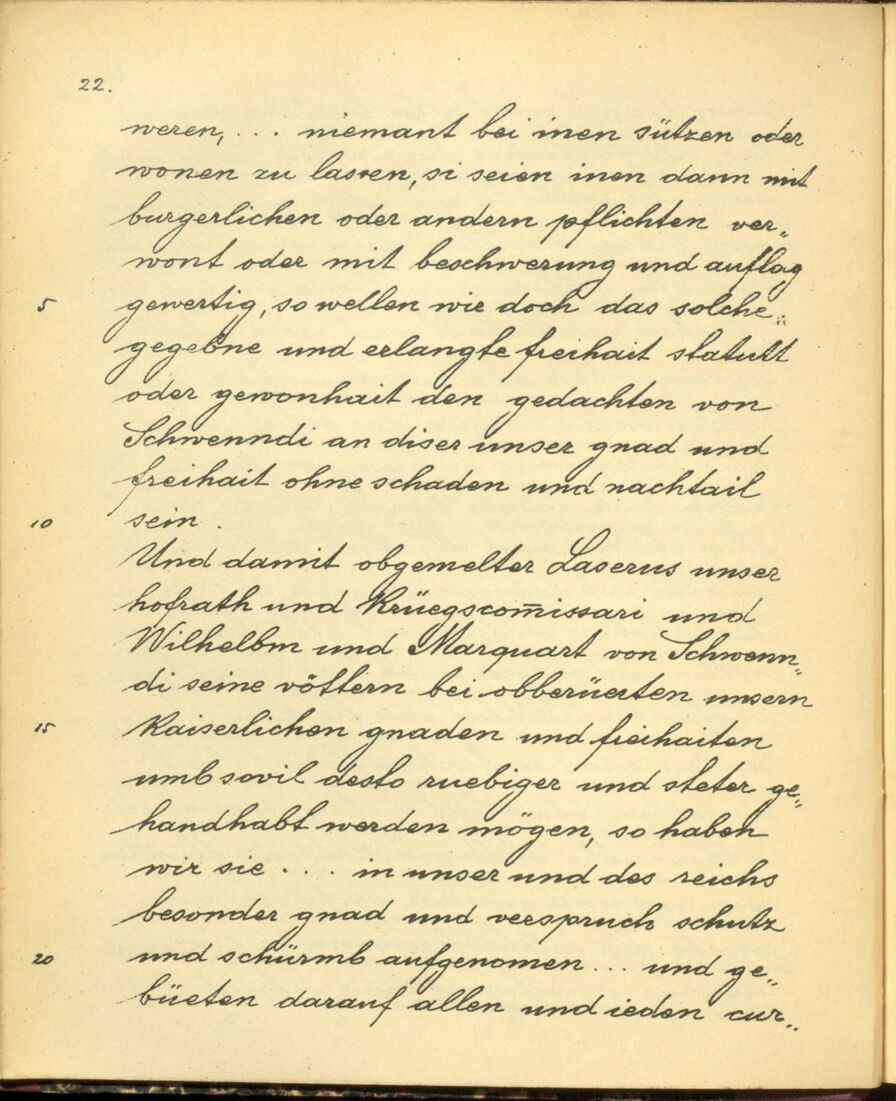 22.
weren, ... niemant bei inen sützen oder
wonen zu lassen, si seien inen dann mit
burgerlichen oder andern pflichten ver„
wont oder mit beschwerung und auflag
5 gewertig, so wellen wir doch das solche„
gegebne und erlangte freihait statutt
oder gewonhait den gedachten von
Schwenndi an diser unser gnad und
freihait ohne schaden und nachtail
10 sein.
Und damit obgemelter Laserus unser
hofrath und Krüegscom̅issari und
Wilhelbm und Marquart von Schwenn„
di seine vöttern bei obberüerten unsern
15 Kaiserlichen gnaden und freihaiten
umb sovil desto ruebiger und steter ge„
handhabt werden mögen, so haben
wir sie ... in unser und des reichs
besonder gnad und verspruch schutz
20 und schürmb aufgenomen ... und ge„
büeten darauf allen und ieden cur„